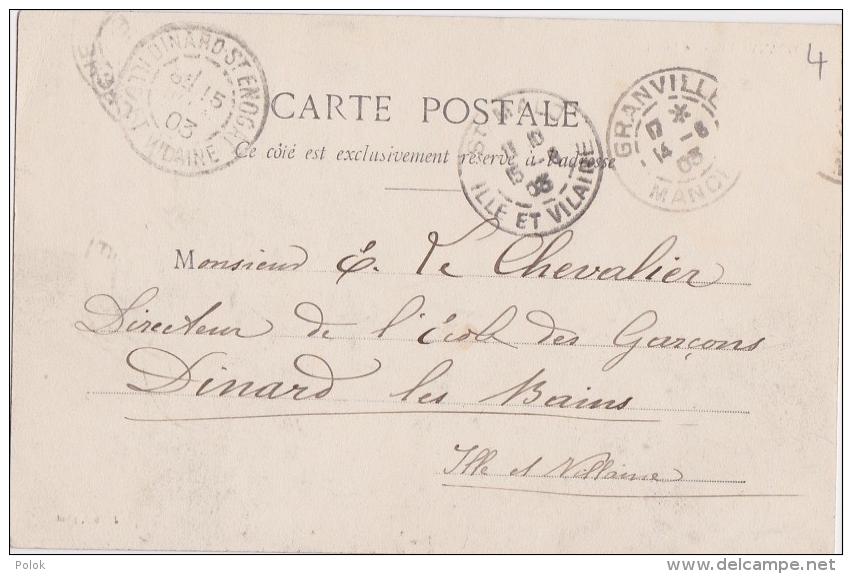 4
DINARD-ST ENOGAT
15
03
ILLE-VILAINE
ST MALO
15 03
ILLE ET VILAINE
GRANVILLE
*
17
14 -6
03
MANCHE
CARTE POSTALE
Ce côté est exclusivement réservé à l'adresse
Monsieur É. Le Chevalier
Directeur de l'École des Garçons
Dinard les Bains
Ille et Villaine
Polok
delcampe.net